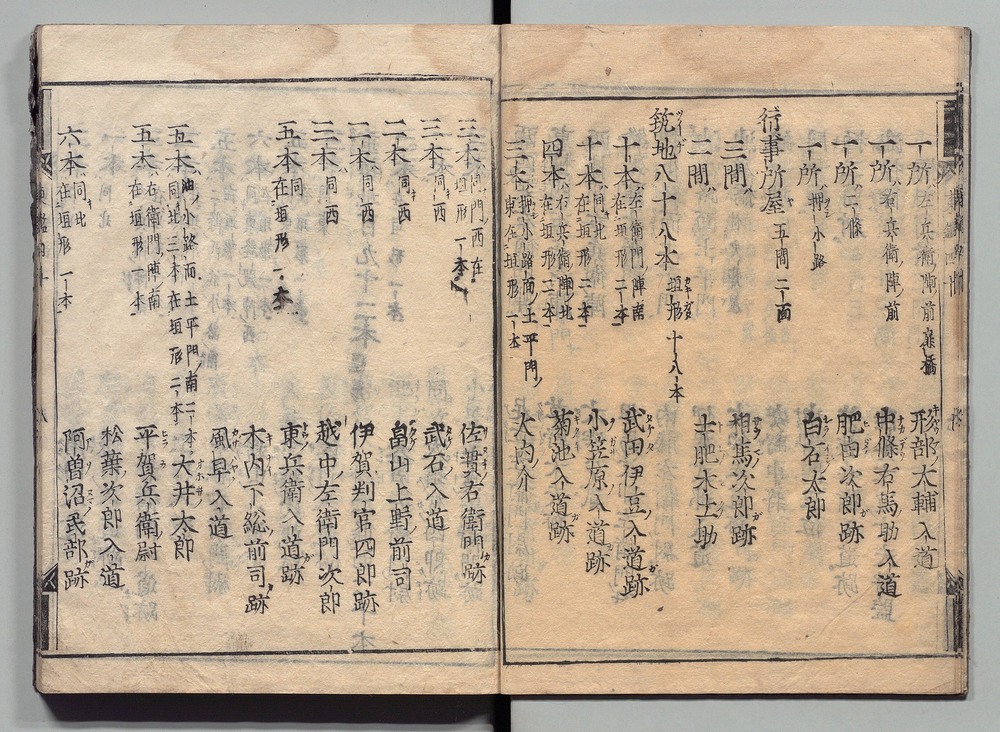 一所 左兵衛陣前 形部大輔入道
一所 右兵衛陣前 中條右馬助入道
一所 二條 肥田次郎跡
一所 押小路 白石太郎
行事所屋 五間二面
三間 相馬次郎跡
二間 土肥木工助
筑地八十八本 垣形十八本
十本 左衛門陣南 在垣形二本 武田伊豆入道跡
十本 同北 在垣形二本 小笠原入道跡
四本 右兵衛陣北 在垣形二本 菊池入道跡
三本 押小路面土平門 東在垣形一本 大内介
三本 同門西在 垣形一本 佐貫右衛門跡
三本 同西 武石入道跡
二本 同 畠山上野前司
一本 同西 伊賀判官四郎跡
三本 同西 越中左衛門次郎
五本 在垣形一本 東兵衛入道跡
木内下総前司跡
風早入道
五本 油小路面土平門南二本 同北三本在垣形二本 大井太郎
五本 右衛門陣南 在垣形一本 平賀兵衛尉
松葉次郎入道
六本 同北 在垣形一本 阿曽沼民部跡